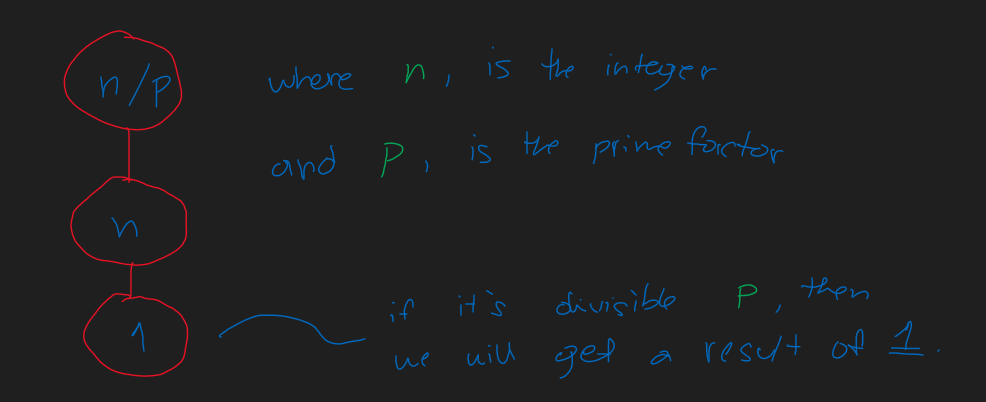 n/p
where n, is the integer
and P, is the prime factor
n
1
if it's divisible P, then
we will get a result of 1.